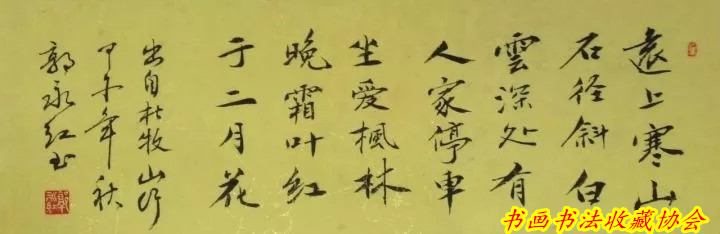 遠上寒山
石径斜白
雲深处有
人家停車
坐爱楓林
晚霜叶红
于二月花
出自杜牧山行
甲午年秋
郭永红书
书画书法收藏协会